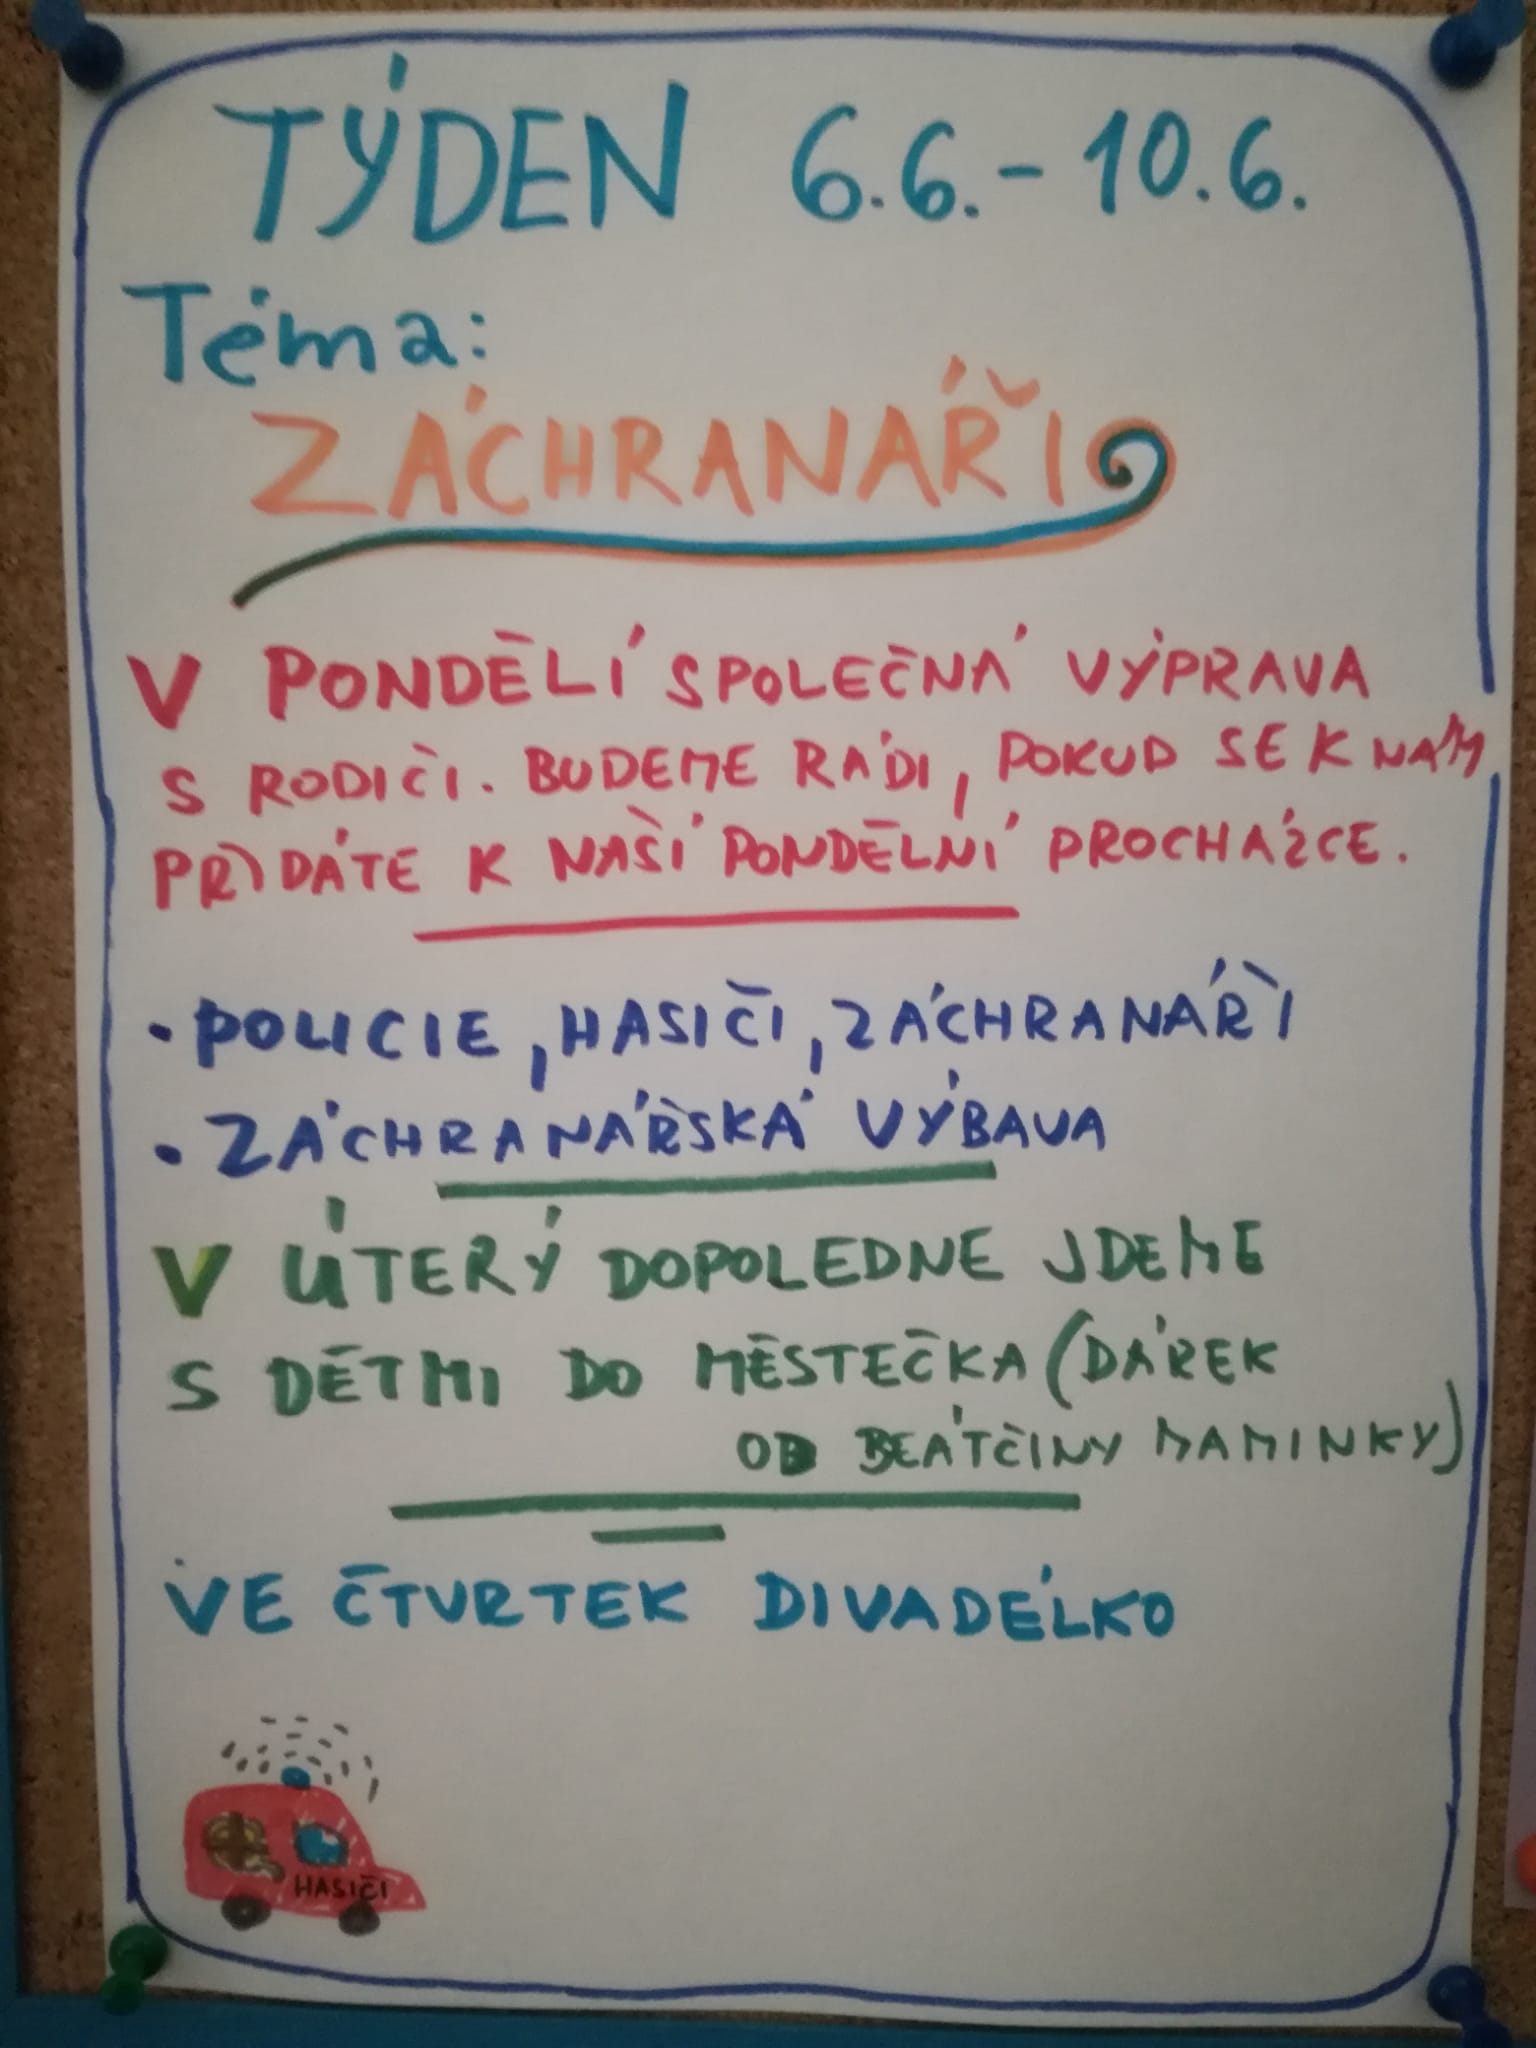 TÝDEN 6.6.-10.6.
Téma:
ZÁCHRANÁŘI
V PONDĚLÍ SPOLEČNÁ VÝPRAVA
S RODIČI. BUDEME RÁDI, POKUD SE K NÁM
PŘIDÁTE K NAŠÍ PONDĚLNÍ PROCHÁZCE.
• POLICIE, HASIČI, ZÁCHRANÁŘI
• ZÁCHRANÁŘSKÁ VÝBAVA
V ÚTERÝ DOPOLEDNE JDEME
S DĚTMI DO MĚSTEČKA (DÁREK
OD BEÁTČINY MAMINKY)
VE ČTVRTEK DIVADÉLKO
HASIČI